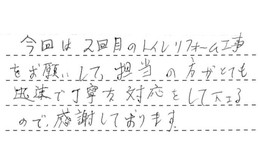 今回は2回目のトイレリフォーム工事
をお願いして、担当の方がとても
迅速で丁寧な対応をして下さる
ので、感謝しております。